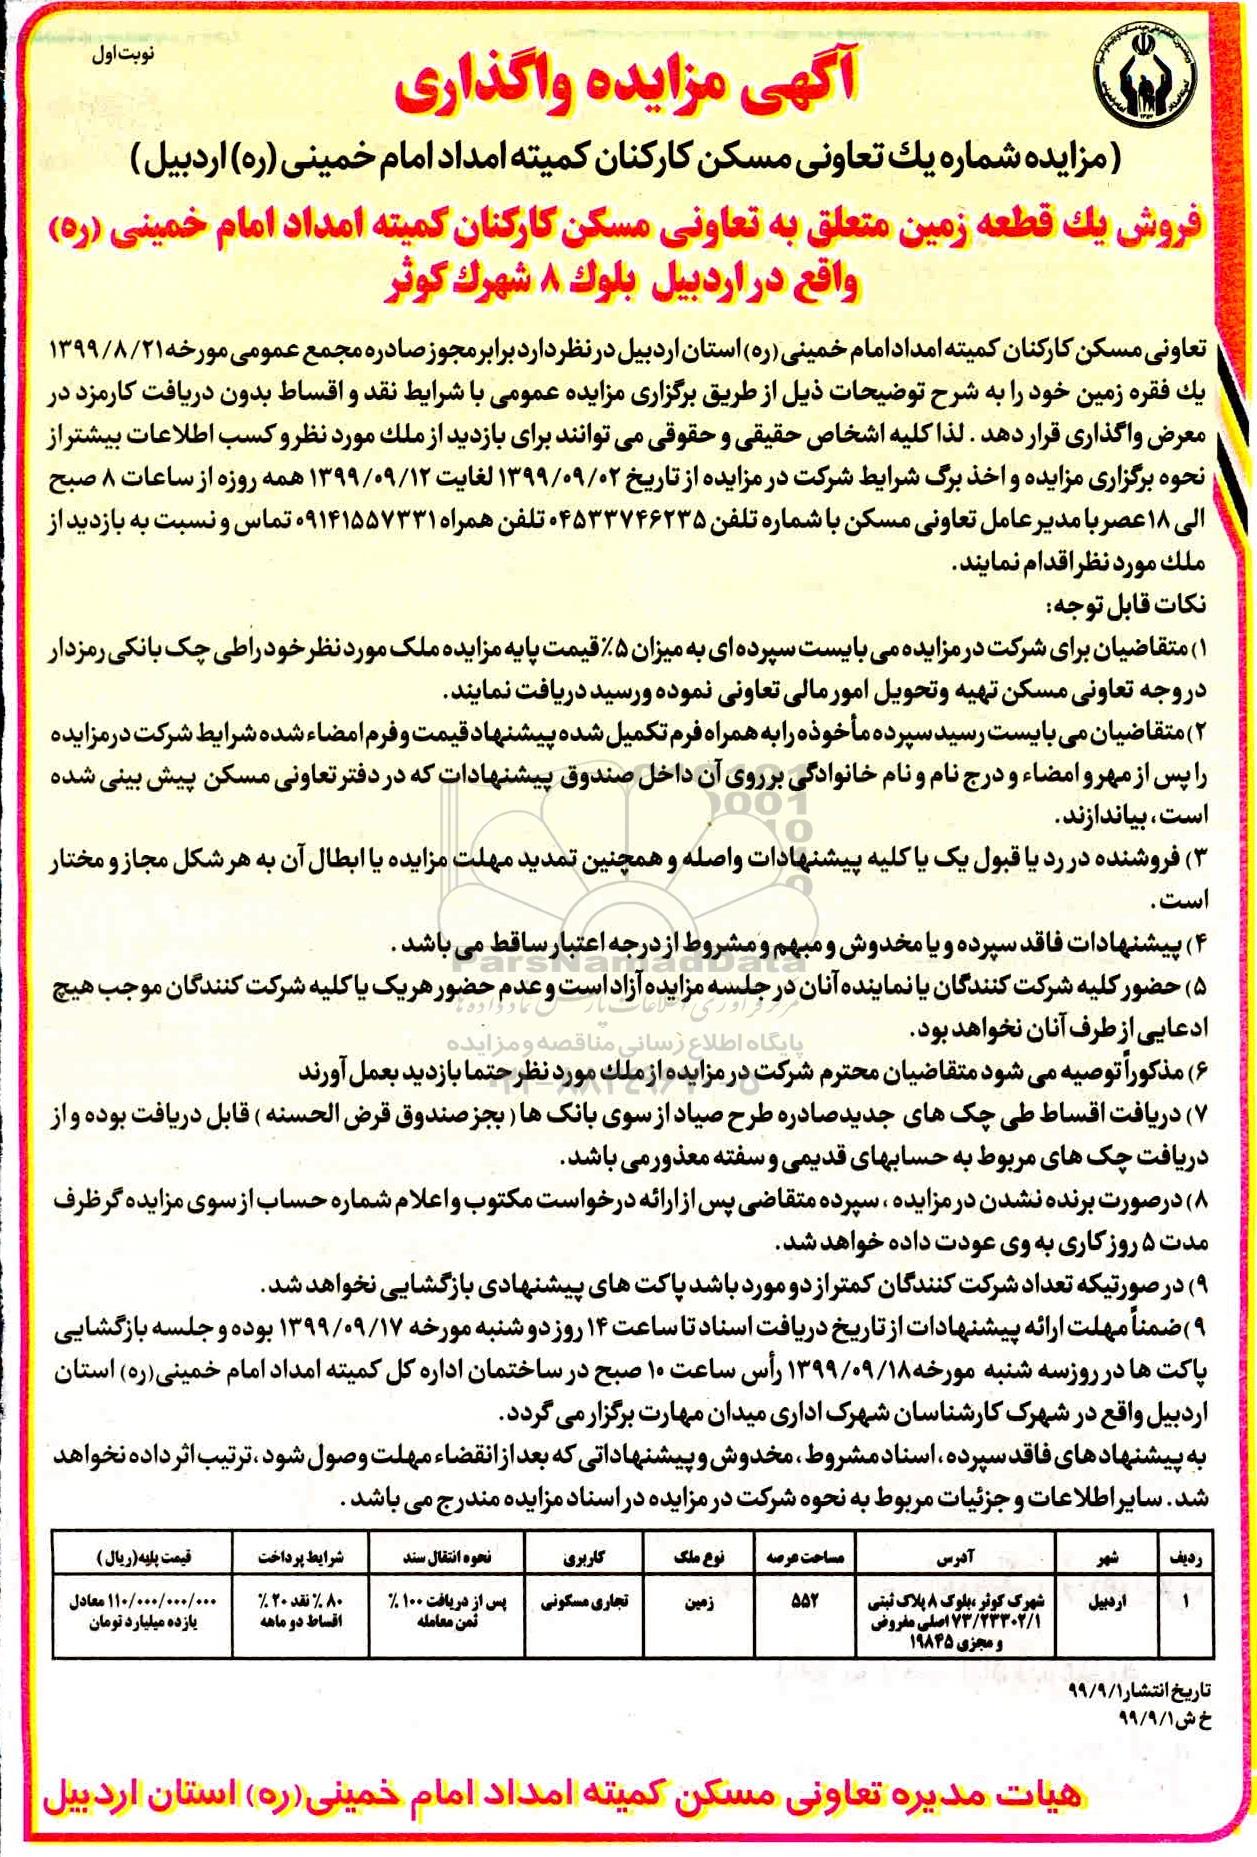 نوبت اول
آگهی مزایده واگذاری
(مزایده شماره یك تعاونی مسکن کارکنان کمیته امداد امام خمینی (ره) اردبیل)
فروش یك قطعه زمین متعلق به تعاونی مسکن کارکنان کمیته امداد امام خمینی (ره)
واقع در اردبیل بلوك ۸ شهرك کوثر
تعاونی مسکن کارکنان کمیته امداد امام خمینی (ره) استان اردبیل در نظر دارد برابر مجوز صادره مجمع عمومی مورخه ۱۳۹۹/۸/۲۱
یك فقره زمین خود را به شرح توضیحات ذیل از طریق برگزاری مزایده عمومی با شرایط نقد و اقساط بدون دریافت کارمزد در
معرض واگذاری قرار دهد . لذا کلیه اشخاص حقیقی و حقوقی می توانند برای بازدید از ملك مورد نظر و کسب اطلاعات بیشتر از
نحوه برگزاری مزایده و اخذ برگ شرایط شرکت در مزایده از تاریخ ۱۳۹۹/۰۹/۰۲ لغایت ۱۳۹۹/۰۹/۱۲ همه روزه از ساعات ۸ صبح
الی ۱۸ عصر با مدیر عامل تعاونی مسکن با شماره تلفن ۰۴۵۳۳۷۴۶۲۳۵ تلفن همراه ۰۹۱۴۱۵۵۷۳۳۱ تماس و نسبت به بازدید از
ملك مورد نظر اقدام نمایند.
نکات قابل توجه:
۱) متقاضیان برای شرکت در مزایده می بایست سپرده ای به میزان ۵٪ قیمت پایه مزایده ملک مورد نظر خود را طی چک بانکی رمزدار
در وجه تعاونی مسکن تهیه وتحویل امور مالی تعاونی نموده ورسید دریافت نمایند.
۲) متقاضیان می بایست رسید سپرده مأخوذه را به همراه فرم تکمیل شده پیشنهاد قیمت و فرم امضاء شده شرایط شرکت در مزایده
را پس از مهر و امضاء و درج نام و نام خانوادگی بر روی آن داخل صندوق پیشنهادات که در دفتر تعاونی مسکن پیش بینی شده
است، بیاندازند.
۳) فروشنده در رد یا قبول یک یا کلیه پیشنهادات واصله و همچنین تمدید مهلت مزایده یا ابطال آن به هر شکل مجاز و مختار
است.
۴) پیشنهادات فاقد سپرده و یا مخدوش و مبهم و مشروط از درجه اعتبار ساقط می باشد .
ParsNamadData
۵) حضور کلیه شرکت کنندگان یا نماینده آنان در جلسه مزایده آزاد است و عدم حضور هر یک یا کلیه شرکت کنندگان موجب هیچ
ادعایی از طرف آنان نخواهد بود.
پایگاه اطلاع رسانی مناقصه و مزایده
۶) مذکوراً توصیه می شود متقاضیان محترم شرکت در مزایده از ملك مورد نظر حتما بازدید بعمل آورند
۷) دریافت اقساط طی چک های جدید صادره طرح صیاد از سوی بانک ها ( بجز صندوق قرض الحسنه ) قابل دریافت بوده و از
دریافت چک های مربوط به حسابهای قدیمی و سفته معذور می باشد.
۸) درصورت برنده نشدن در مزایده ، سپرده متقاضی پس از ارائه درخواست مکتوب و اعلام شماره حساب از سوی مزایده گر ظرف
مدت ۵ روز کاری به وی عودت داده خواهد شد.
۹) در صورتیکه تعداد شرکت کنندگان کمتر از دو مورد باشد پاکت های پیشنهادی بازگشایی نخواهد شد.
۹) ضمناً مهلت ارائه پیشنهادات از تاریخ دریافت اسناد تا ساعت ۱۴ روز دو شنبه مورخه ۱۳۹۹/۰۹/۱۷ بوده و جلسه بازگشایی
پاکت ها در روز سه شنبه مورخه ۱۳۹۹/۰۹/۱۸ رأس ساعت ۱۰ صبح در ساختمان اداره کل کمیته امداد امام خمینی(ره) استان
اردبیل واقع در شهرک کارشناسان شهرک اداری میدان مهارت برگزار می گردد.
به پیشنهاد های فاقد سپرده ، اسناد مشروط ، مخدوش و پیشنهاداتی که بعد از انقضاء مهلت وصول شود ، ترتیب اثر داده نخواهد
شد. سایر اطلاعات و جزئیات مربوط به نحوه شرکت در مزایده در اسناد مزایده مندرج می باشد .
ردیف شهر آدرس مساحت عرصه نوع ملک کاربری نحوه انتقال سند شرایط پرداخت قیمت پایه(ریال)
۱ اردبیل شهرک کوثر ،بلوک ۸ پلاک ثبتی ۷۳/۲۳۳۰۲/۱ اصلی مفروض و مجزی ۱۹۸۴۵ ۵۵۲ زمین تجاری مسکونی پس از دریافت ۱۰۰ ٪ ثمن معامله ۸۰ ٪ نقد ۲۰ ٪ اقساط دو ماهه ۱۱۰/۰۰۰/۰۰۰/۰۰۰ معادل یازده میلیارد تومان
تاریخ انتشار ۹۹/۹/۱
خ ش ۹۹/۹/۱
هیات مدیره تعاونی مسکن کمیته امداد امام خمینی(ره) استان اردبیل